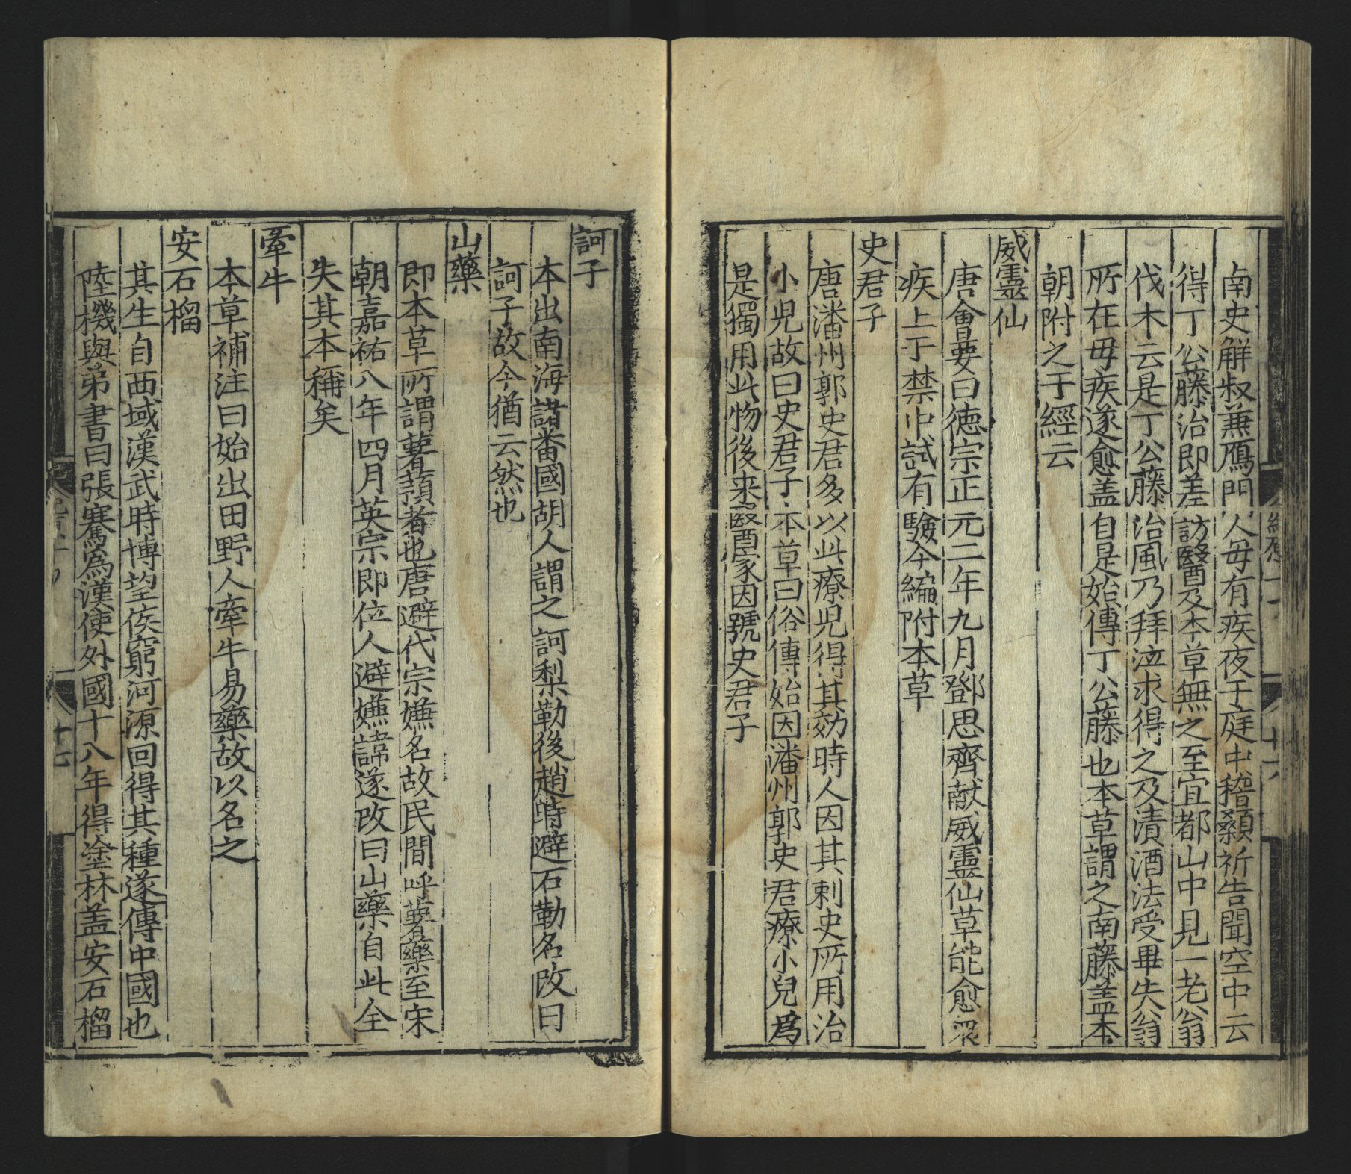 南史解叔兼鴈門人母有疾夜于庭中稽顙祈告聞空中云
得丁公藤治即差訪醫及本草無之至宜都山中見一老翁
伐木云是丁公藤治風乃拜泣求得之及漬酒法受畢失翁
所在母疾遂愈盖自是始傳丁公藤也本草謂之南藤盖本
朝附之于經云
威靈仙
唐會要曰德宗正元二年九月鄧思齊献威靈仙草能愈衆
疾上于禁中試有驗令編附本草
史君子
唐潘州郭史君多以此療児得其効時人因其刺史所用治
小児故曰史君子本草曰俗傳始因潘州郭史君療小兒爲
是獨用此物後来醫家因號史君子
訶子
本出南海諸番國胡人謂之訶梨勒後趙時避石勒名改曰
訶子故今猶云然也
山藥
即本草所謂薯蕷者也唐避代宗嫌名故民間呼薯藥至宋
朝嘉祐八年四月英宗即位人避嫌諱遂改曰山藥自此全
失其本稱矣
牽牛
本草補注曰始出田野人牽牛易藥故以名之
安石榴
其生自西域漢武時博望侯窮河源回得其種遂傳中國也
陸機與弟書曰張騫為漢使外國十八年得塗林盖安石榴